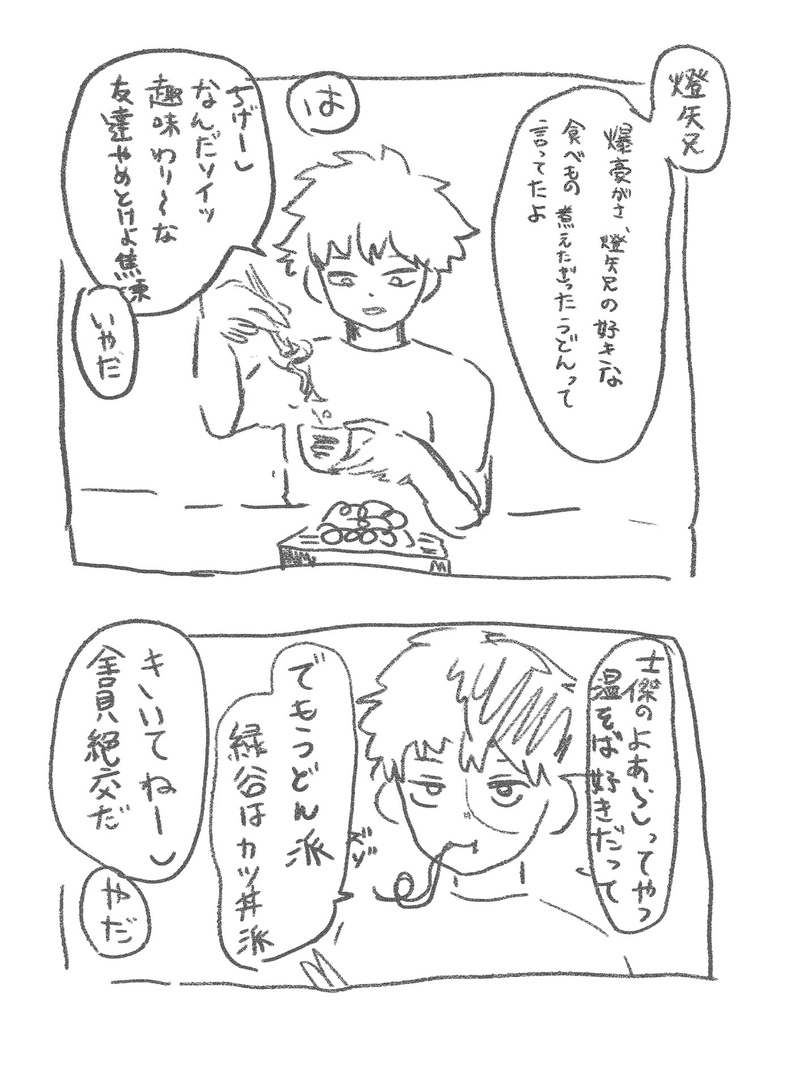 燈矢兄
爆豪がさ、燈矢兄の好きな
食べもの 煮えたぎったうどんって
言ってたよ
は
ちげーし
なんだソイツ
趣味わり〜な
友達やめとけよ焦凍
いやだ
士傑のよあらしってやつ
温そば好きだって
でもうどん派
緑谷はカツ丼派
ズゾ
きいてねーし
全員絶交だ
やだ